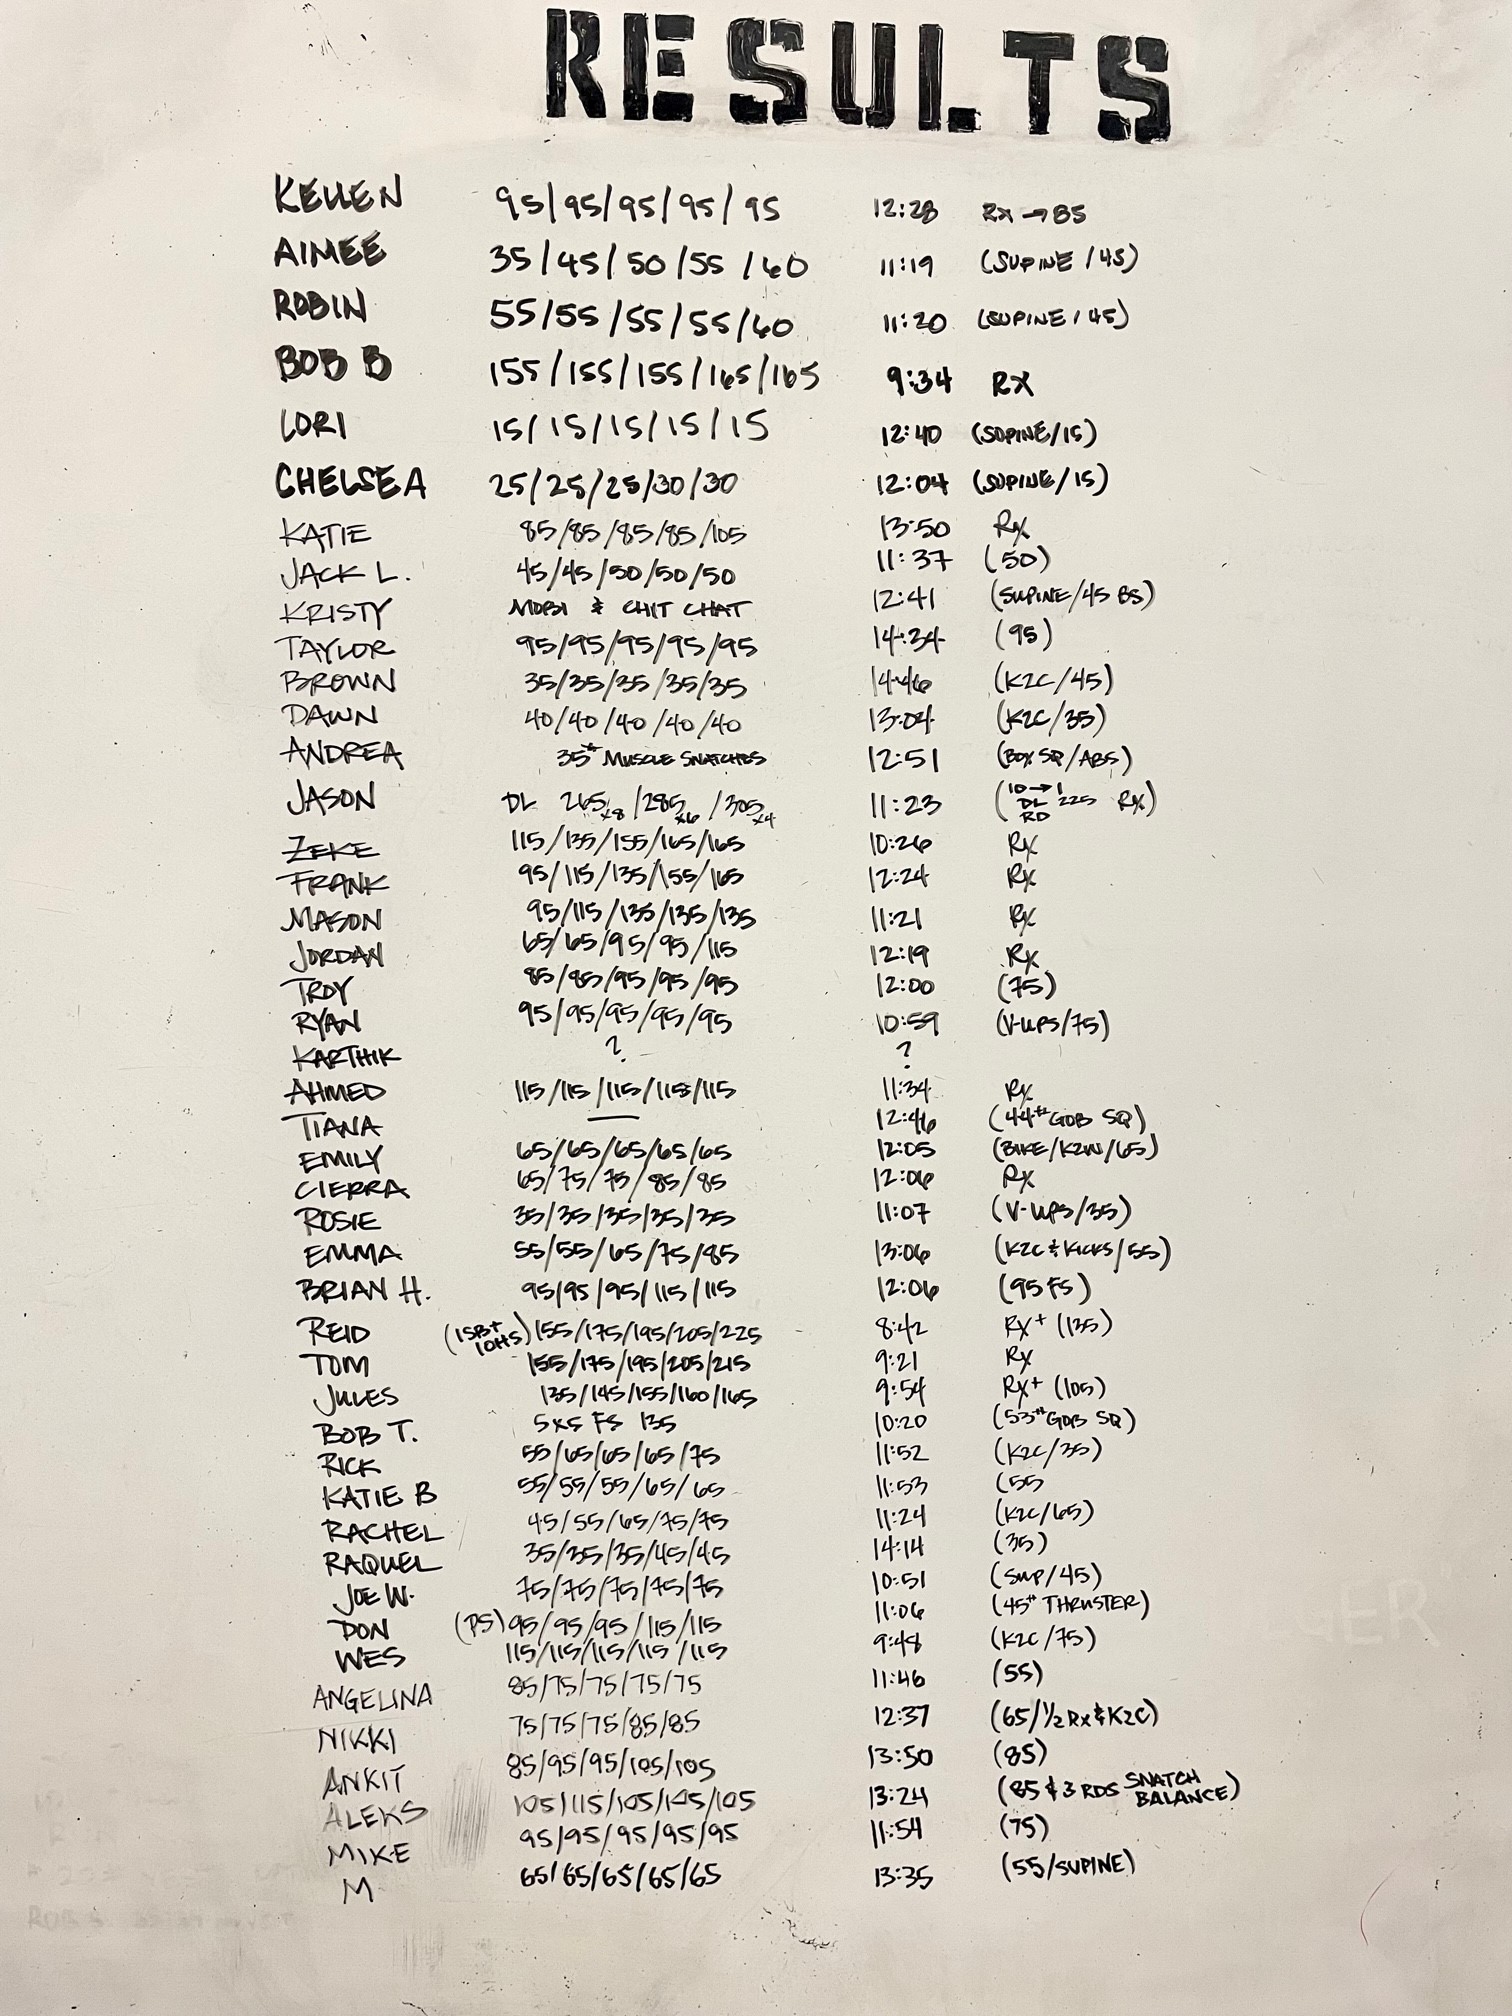 RESULTS
KELLEN 95/95/95/95/95 12:28 Rx → BS
AIMEE 35/45/50/55/60 11:19 (SUPINE/45)
ROBIN 55/55/55/55/60 11:20 (SUPINE/45)
BOB B 155/155/155/165/165 9:34 RX
LORI 15/15/15/15/15 12:40 (SUPINE/15)
CHELSEA 25/25/25/30/30 12:04 (SUPINE/15)
KATIE 85/85/85/85/105 13:50 Rx
JACK L. 45/45/50/50/50 11:37 (50)
KRISTY MOBI & CHIT CHAT 12:41 (SUPINE/45 BS)
TAYLOR 95/95/95/95/95 14:34 (95)
BROWN 35/35/35/35/35 14:46 (K2C/45)
DAWN 40/40/40/40/40 13:04 (K2C/35)
ANDREA 35# MUSCLE SNATCHES 12:51 (BOX SQ/ABS)
JASON DL 265x8/285x6/305x4 11:23 (10→1 DL 225 RD Rx)
ZEKE 115/135/155/165/165 10:26 Rx
FRANK 95/115/135/155/165 12:24 Rx
MASON 95/115/135/135/135 11:21 Rx
JORDAN 65/65/95/95/115 12:19 Rx
TROY 85/85/95/95/95 12:00 (75)
RYAN 95/95/95/95/95 10:59 (V-UPS/75)
KARTHIK ? ?
AHMED 115/115/115/115/115 11:34 Rx
TIANA — 12:46 (44# GOB SQ)
EMILY 65/65/65/65/65 12:05 (BIKE/K2W/65)
CIERRA 65/75/75/85/85 12:06 Rx
ROSIE 35/35/35/35/35 11:07 (V-UPS/35)
EMMA 55/55/65/75/85 13:06 (K2C & KICKS/55)
BRIAN H. 95/95/95/115/115 12:06 (95 FS)
REID (1SB+ 10HS) 155/175/195/205/225 8:42 RX+ (135)
TOM 155/175/195/205/215 9:21 Rx
JULES 135/145/155/160/165 9:54 RX+ (105)
BOB T. 5x5 FS 135 10:20 (53# GOB SQ)
RICK 55/65/65/65/75 11:52 (K2C/35)
KATIE B 55/55/55/65/65 11:53 (55
RACHEL 45/55/65/75/75 11:24 (K2C/65)
RAQUEL 35/35/35/45/45 14:14 (35)
JOE W. 75/75/75/75/75 10:51 (SUP/45)
DON (PS) 95/95/95/115/115 11:06 (45# THRUSTER)
WES 115/115/115/115/115 9:48 (K2C/75)
ANGELINA 85/75/75/75/75 11:46 (55)
NIKKI 75/75/75/85/85 12:37 (65/1/2 Rx & K2C)
ANKIT 85/95/95/105/105 13:50 (85)
ALEKS 105/115/105/105/105 13:24 (85 & 3 RDS SNATCH BALANCE)
MIKE 95/95/95/95/95 11:54 (75)
M 65/65/65/65/65 13:35 (55/SUPINE)